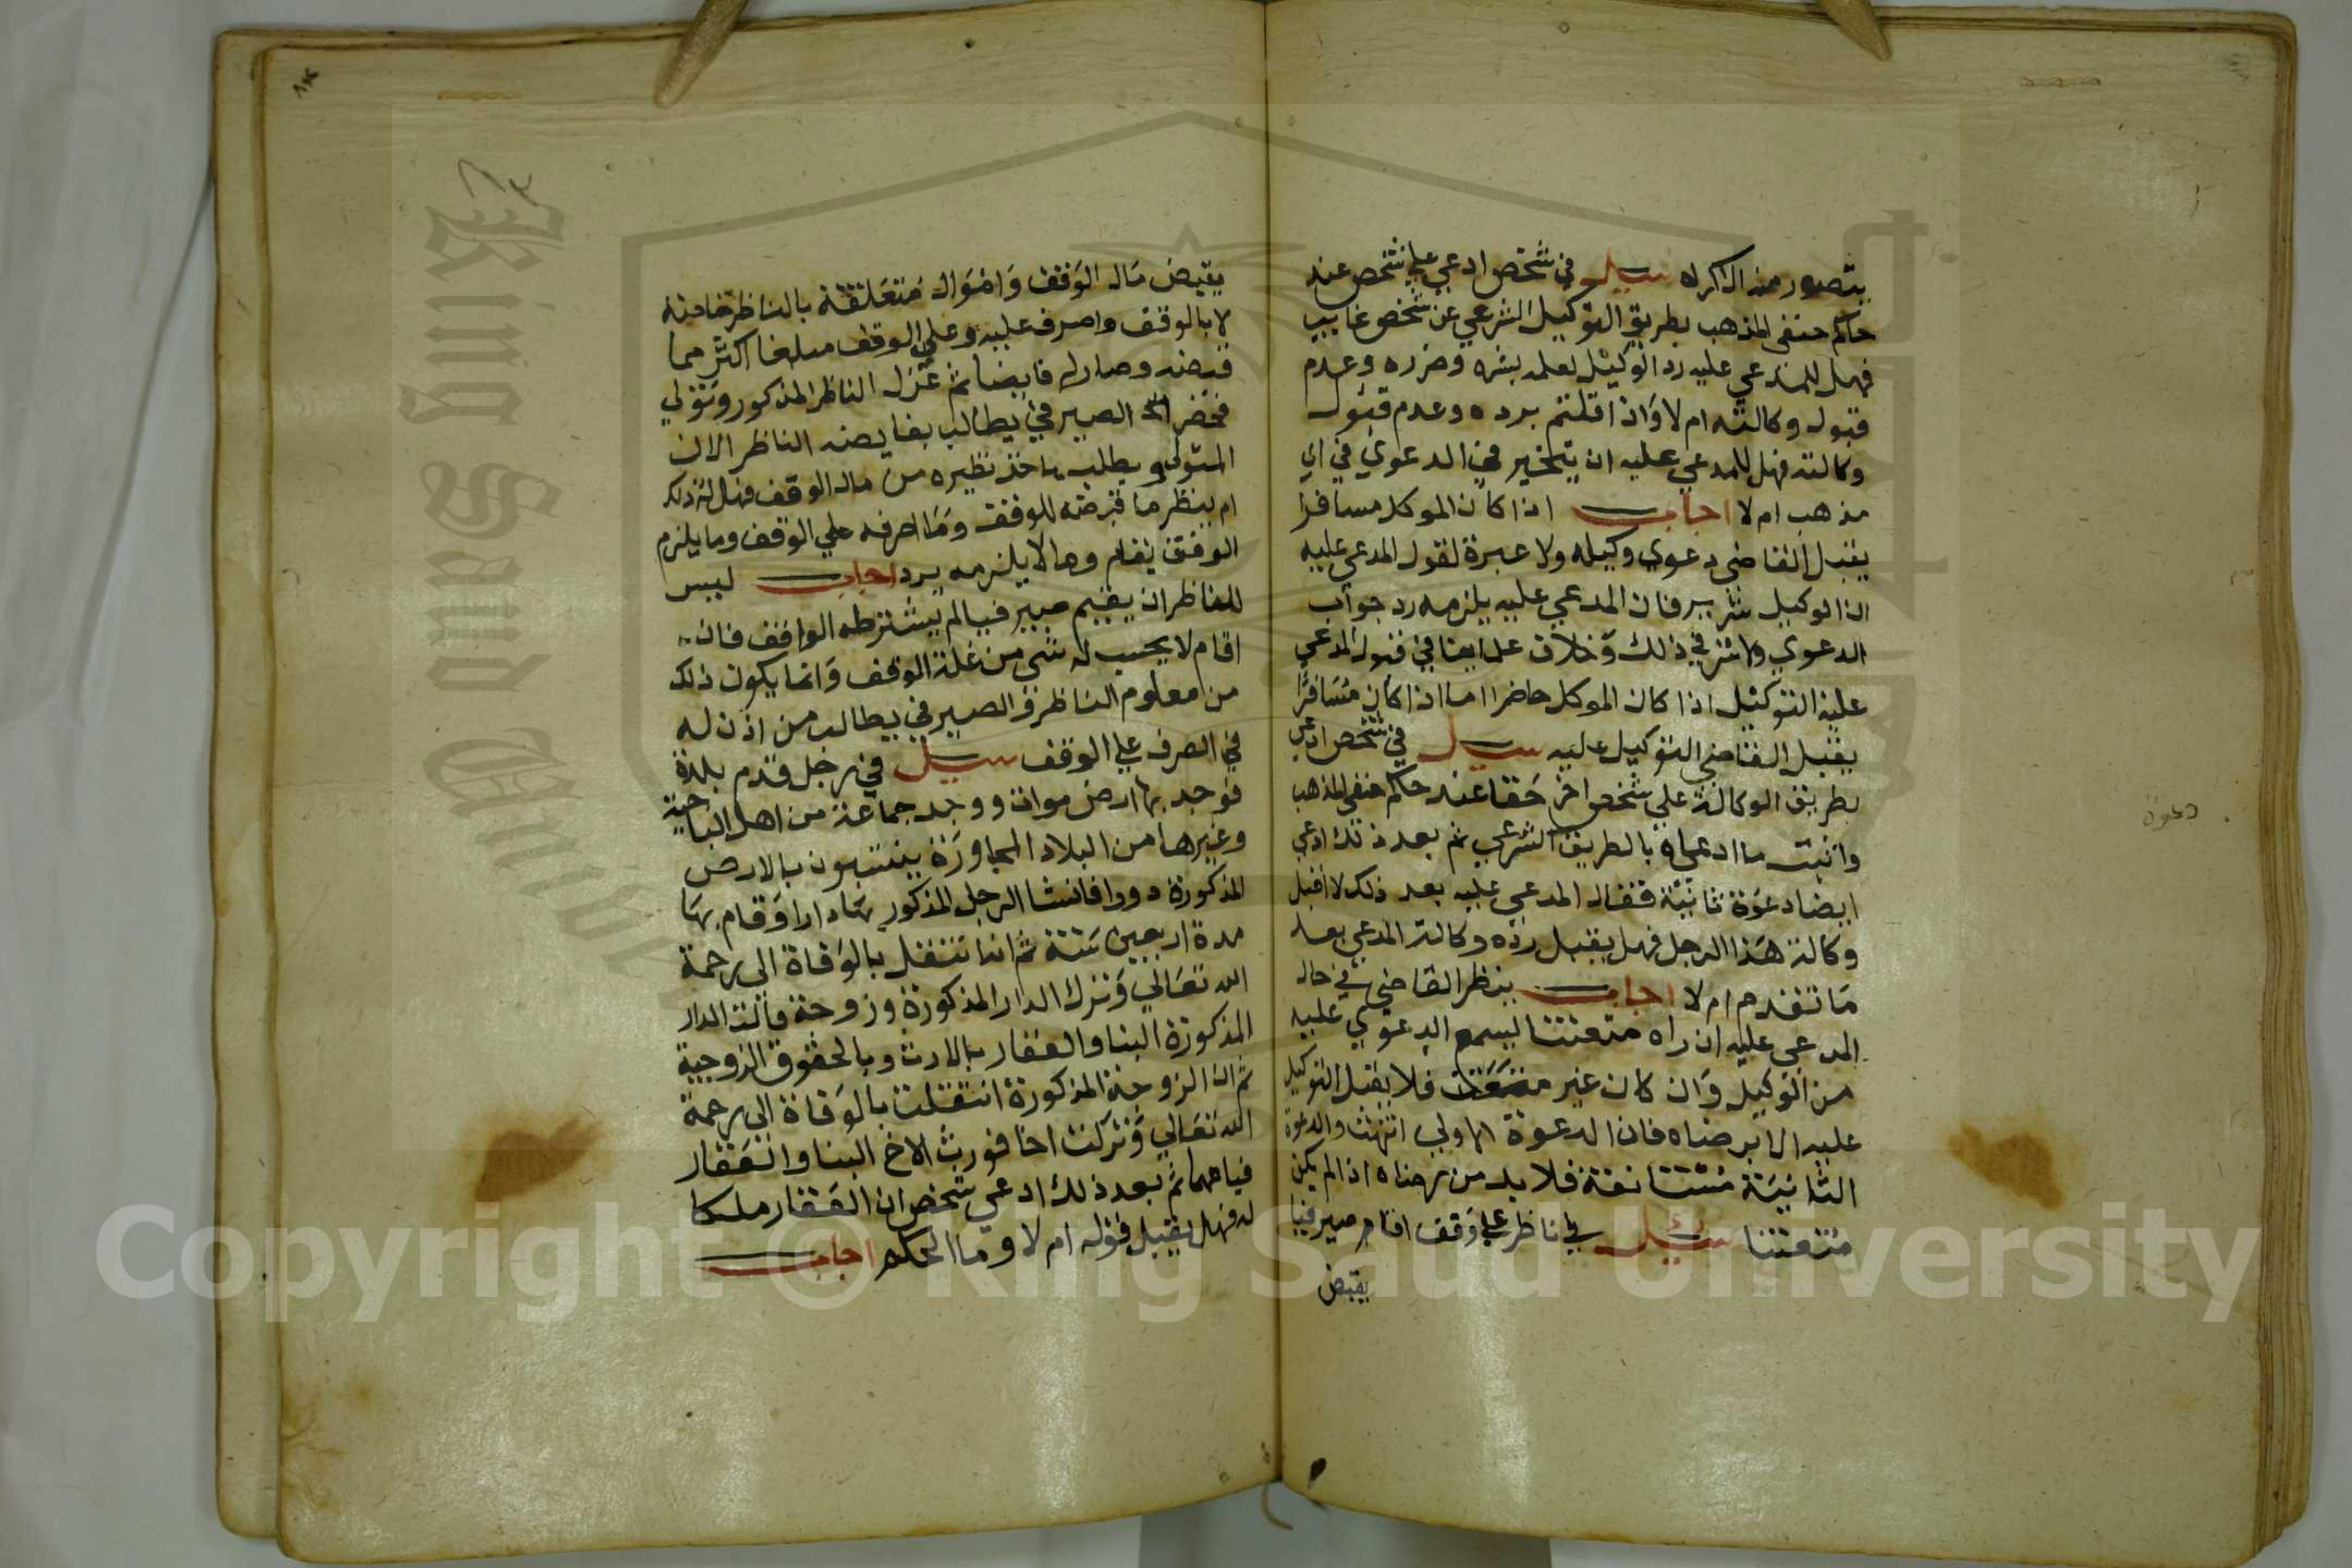 يتصور منه الاكراه سيل في شخص ادعي علي شخص عند
حاكم حنفي المذهب بطريق التوكيل الشرعي عن شخص غايب
فهل للمدعي عليه رد الوكيل لعلمه بشره وضرره وعدم
قبول وكالته ام لا وان اقلتم برده وعدم قبول
وكالته فهل للمدعي عليه ان يتخير في الدعوي في اي
مذهب ام لا اجاب اذا كان الموكل مسافرا
يقبل القاضي دعوي وكيله ولا عبرة لقول المدعي عليه
ان الوكيل شرير فان المدعي عليه يلزمه رد جواب
الدعوي ولا شر في ذلك وخلاف علماينا في قبول المدعي
عليه التوكيل اذا كان الموكل حاضرا اما اذا كان مسافرا
يقبل القاضي التوكيل عليه سيل في شخص ادعي
بطريق الوكالة علي شخص اخر حقا عند حاكم حنفي المذهب
واثبت ما ادعاه بالطريق الشرعي ثم بعد ذلك ادعي
ايضا دعوة ثانية فقال المدعي عليه بعد ذلك لا اقبل
وكالة هذا الرجل فهل يقبل رده وكالة المدعي بعد
ما تقدم ام لا اجاب ينظر القاضي في حال
المدعي عليه ان راه متعنتا ليسمع الدعوي عليه
من الوكيل وان كان غير متعنت فلا يقبل التوكيل
عليه الا برضاه فان الدعوة الاولي انتهت والدعوة
الثانية مستانفة فلا بد من رضاه اذا لم يكن
متعنتا سيل في ناظر علي وقف اقام صيرفيا
يقبض
دعوة
يقبض مال الوقف واموال متعلقة بالناظر خاصة
لا بالوقف واصرف عليه وعلي الوقف مبلغا اكثر مما
قبضه وصار له فايضا ثم عزل الناظر المذكور وتولي
فحضر الصيرفي يطالب بفايضه الناظر الان
المتولي ويطلب ياخذ نظيره من مال الوقف فهل له ذلك
ام ينظر ما قبضه للوقف وما اصرفه علي الوقف وما يلزم
الوقف يقام وما لا يلزمه يرد اجاب ليس
للناظر ان يقيم صيرفيا لم يشترطه الواقف فان
اقام لا يحسب له شي من غلة الوقف وانما يكون ذلك
من معلوم الناظر والصيرفي يطالب من اذن له
في الصرف علي الوقف سيل في رجل قدم بلدة
فوجد بها ارض موات ووجد جماعة من اهل الناحية
وغيرها من البلاد المجاورة ينتهبون بالارض
المذكورة دورا فانشا الرجل المذكور بها دارا واقام بها
مدة اربعين سنة ثم انه انتقل بالوفاة الي رحمة
الله تعالي وترك الدار المذكورة وزوجة فالت الدار
المذكورة البنا والعقار بالارث وبالحقوق الزوجية
ثم ان الزوجة المذكورة انتقلت بالوفاة الي رحمة
الله تعالي وتركت اخا فورث الاخ البنا والعقار
فباعهما ثم بعد ذلك ادعي شخص ان العقار ملكا
له فهل يقبل قوله ام لا وما الحكم اجاب
Copyright © King Saud University